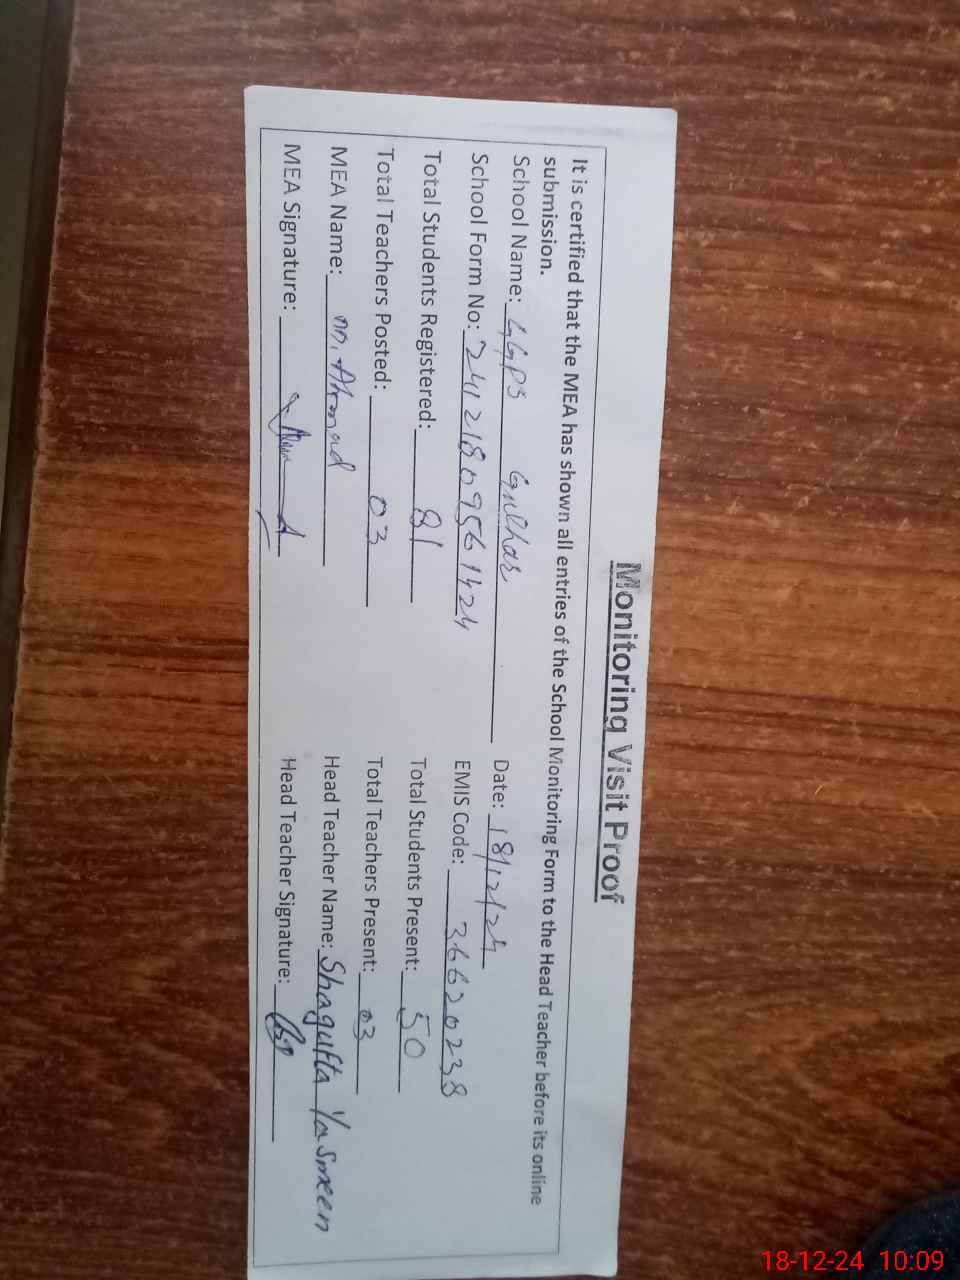 Monitoring Visit Proof
It is certified that the MEA has shown all entries of the School Monitoring Form to the Head Teacher before its online
submission.
School Name: GGPS Gulhar Date: 18/12/24
School Form No: 24121809561424 EMIS Code: 36620238
Total Students Registered: 81 Total Students Present: 50
Total Teachers Posted: 03 Total Teachers Present: 03
MEA Name: M. Ahmad Head Teacher Name: Shagufta Yasmeen
MEA Signature: Head Teacher Signature:
18-12-24 10:09